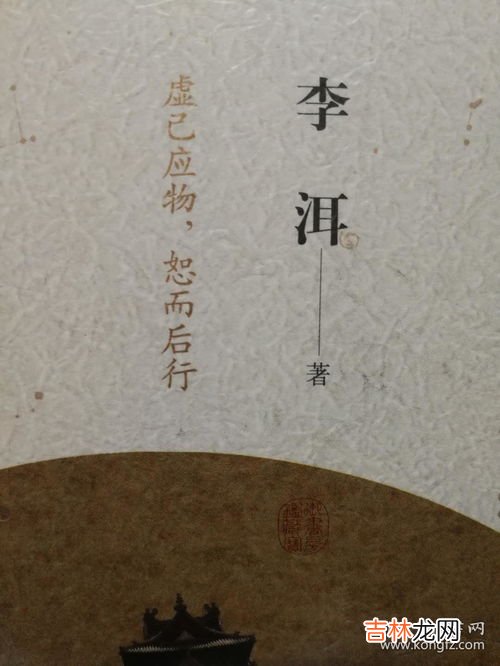 李洱
著
虚己应物，恕而后行
吉林龙网
www.kongfz.com